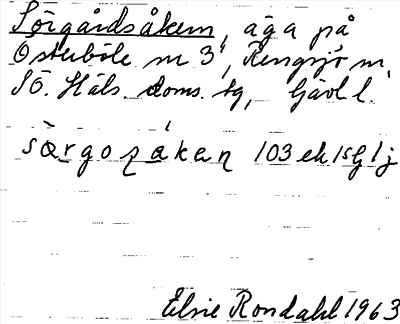 Sörgårdsåkern, äga på
Österböle nr 3, Rengsjö sn,
SÖ. Häls. doms. tg, Gävl l.
särgoṣåkaṇ 103 ek
Elsie Rondahl 1963